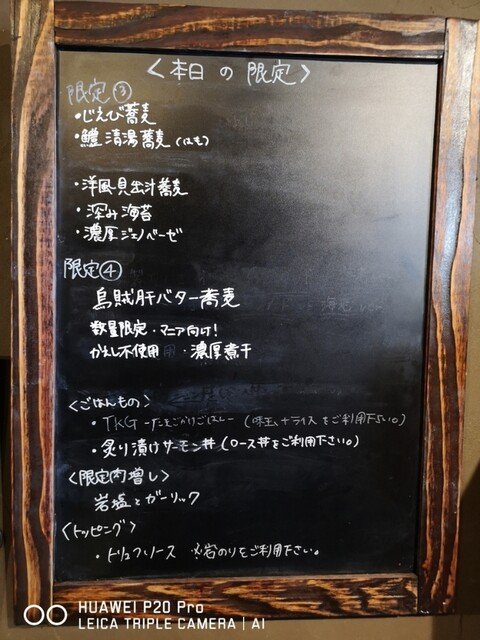 〈本日の限定〉
限定③
・じえび蕎麦
・鱧清湯蕎麦(はも)
・洋風昆出汁蕎麦
・深み海苔
・濃厚ジェノベーゼ
限定④
烏賊肝バター蕎麦
数量限定・マニア向け!
かえし不使用・濃厚煮干
〈ごはんもの〉
・TKG -たまごかけごはん- (味玉+ライスをご利用下さい)
・炙り漬けサーモン丼(ロース丼をご利用下さい。)
〈限定肉増し〉
岩塩とガーリック
〈トッピング〉
・トリュフソース ※岩のりをご利用下さい。
HUAWEI P20 Pro
LEICA TRIPLE CAMERA | AI